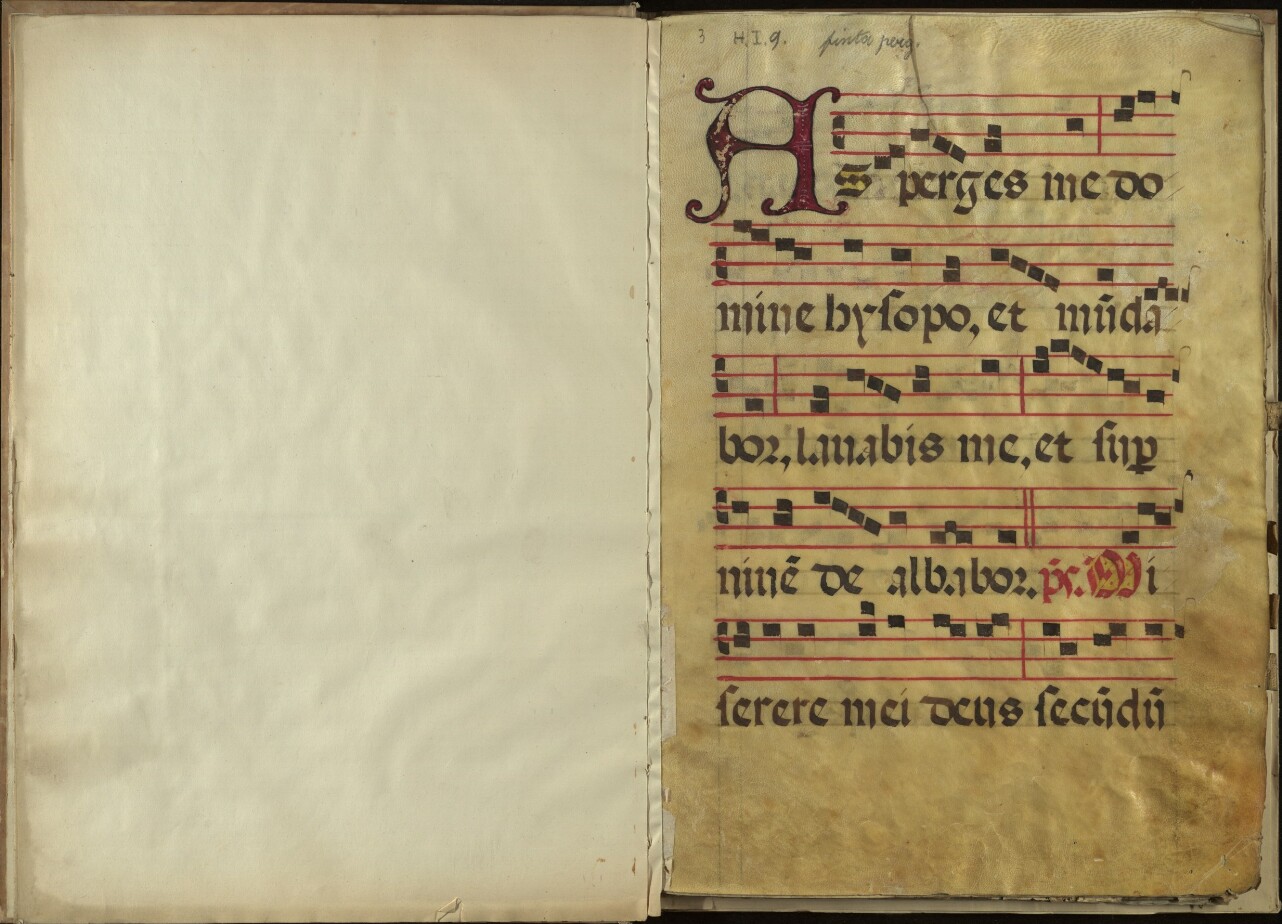 3 H.I.9. finta perg.
As perges me do
mine hysopo, et mūda
bor, lauabis me, et suꝑ
niuē de albabor. p̄s. Mi
serere mei deus secūdū